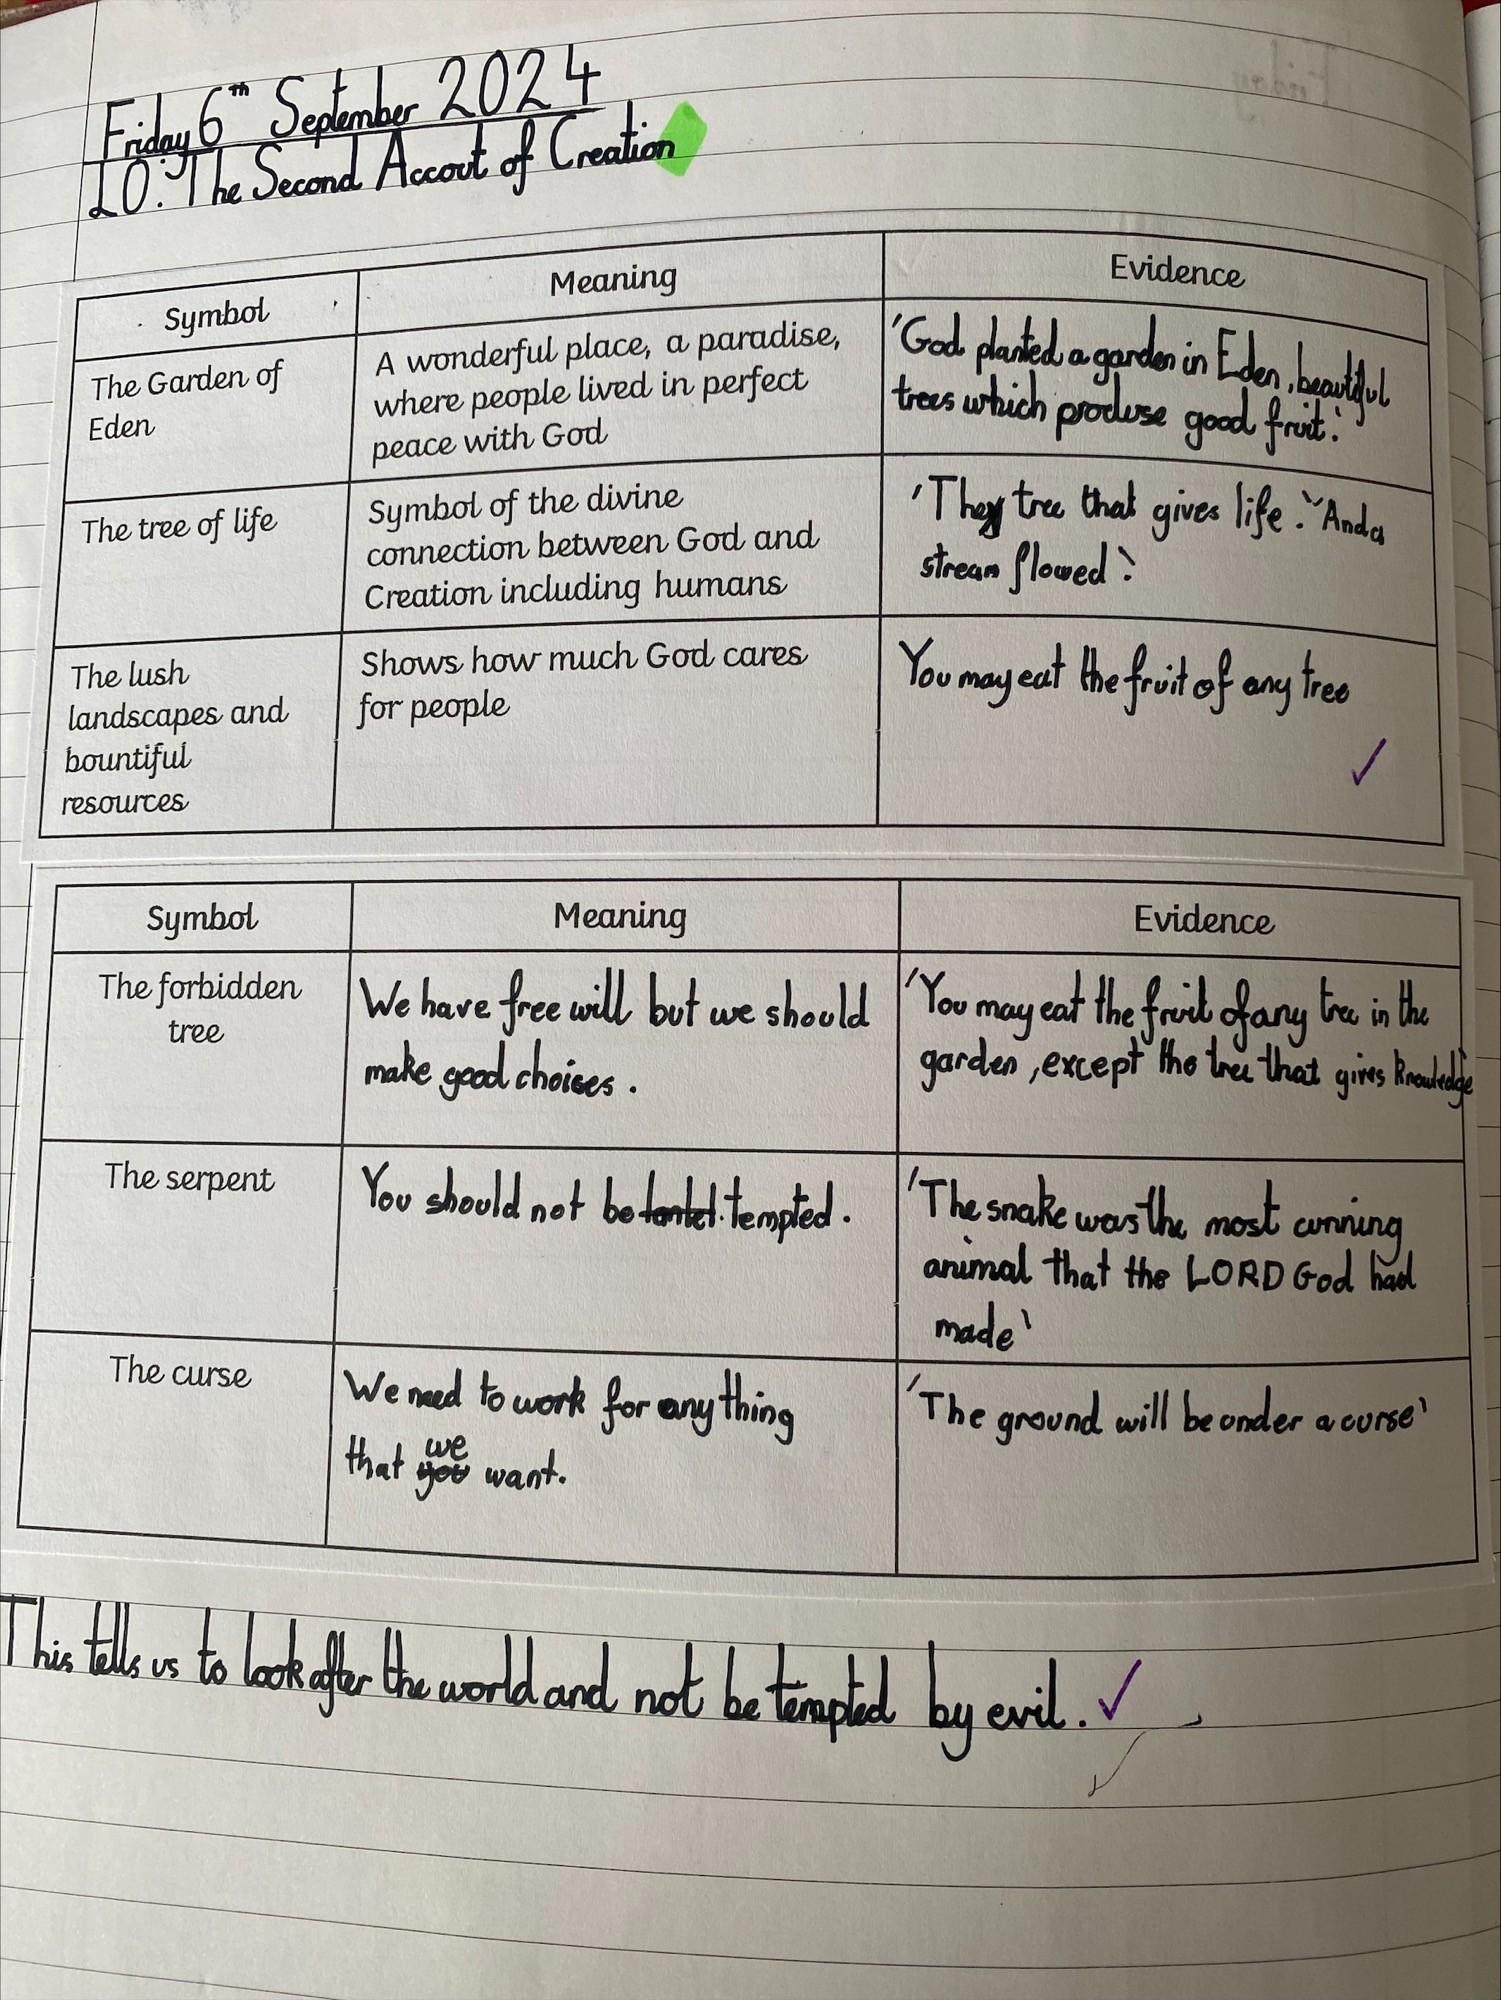 Friday 6th September 2024
LO: The Second Accout of Creation
Symbol
Meaning
Evidence
The Garden of
Eden
A wonderful place, a paradise,
where people lived in perfect
peace with God
'God planted a garden in Eden, beautiful
trees which produse good fruit.'
The tree of life
Symbol of the divine
connection between God and
Creation including humans
'They tree that gives life.' 'And a
stream flowed'.
The lush
landscapes and
bountiful
resources
Shows how much God cares
for people
You may eat the fruit of any tree
Symbol
Meaning
Evidence
The forbidden
tree
We have free will but we should
make good choises.
'You may eat the fruit of any tree in the
garden, except the tree that gives knowledge'
The serpent
You should not be tempted.
'The snake was the most cunning
animal that the LORD God had
made'
The curse
We need to work for anything
that you we want.
'The ground will be under a curse'
This tells us to look after the world and not be tempted by evil.